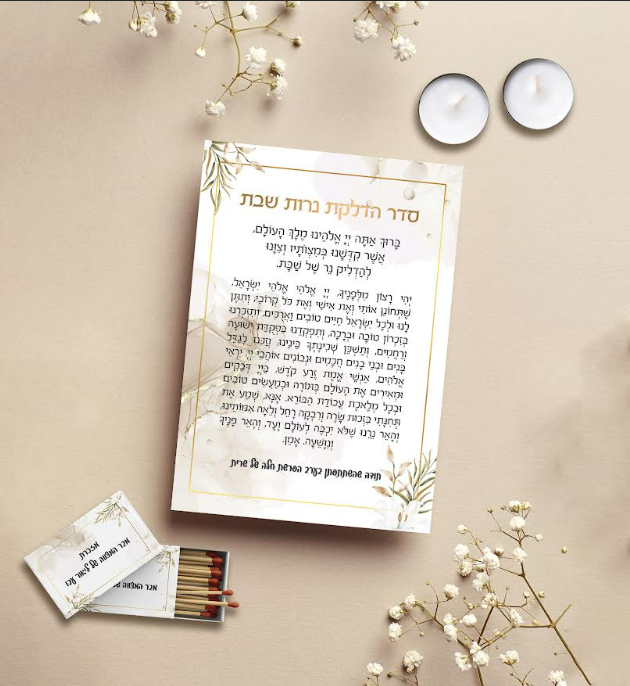 סדר הדלקת נרות שבת
בָּרוּךְ אַתָּה יְיָ אֱלֹהֵינוּ מֶלֶךְ הָעוֹלָם,
אֲשֶׁר קִדְּשָׁנוּ בְּמִצְוֹתָיו וְצִוָּנוּ
לְהַדְלִיק נֵר שֶׁל שַׁבָּת.
יְהִי רָצוֹן מִלְּפָנֶיךָ, יְיָ אֱלֹהַי אֱלֹהֵי יִשְׂרָאֵל,
שֶׁתְּחוֹנֵן אוֹתִי וְאֶת אִישִׁי וְאֶת כָּל קְרוֹבַי, וְתִתֵּן
לָנוּ וּלְכָל יִשְׂרָאֵל חַיִּים טוֹבִים וַאֲרֻכִּים, וְתִזְכְּרֵנוּ
בְּזִכְרוֹן טוֹבָה וּבְרָכָה, וְתִפְקְדֵנוּ בִּפְקֻדַּת יְשׁוּעָה
וְרַחֲמִים, וְתַשְׁכֵּן שְׁכִינָתְךָ בֵּינֵינוּ, וְזַכֵּנוּ לְגַדֵּל
בָּנִים וּבְנֵי בָנִים חֲכָמִים וּנְבוֹנִים אוֹהֲבֵי יְיָ יִרְאֵי
אֱלֹהִים, אַנְשֵׁי אֱמֶת זֶרַע קֹדֶשׁ, בַּייָ דְּבֵקִים
וּמְאִירִים אֶת הָעוֹלָם בְּתוֹרָה וּבְמַעֲשִׂים טוֹבִים
וּבְכָל מְלֶאכֶת עֲבוֹדַת הַבּוֹרֵא. אָנָּא, שְׁמַע אֶת
תְּחִנָּתִי בִּזְכוּת שָׂרָה וְרִבְקָה רָחֵל וְלֵאָה אִמּוֹתֵינוּ,
וְהָאֵר נֵרֵנוּ שֶׁלֹּא יִכְבֶּה לְעוֹלָם וָעֶד, וְהָאֵר פָּנֶיךָ
וְנִוָּשֵׁעָה. אָמֵן.
תודה שהשתתפתן בערב הפרשת חלה של שרית
מזכרת
מבר המצווה של ליאור
מבר המצווה